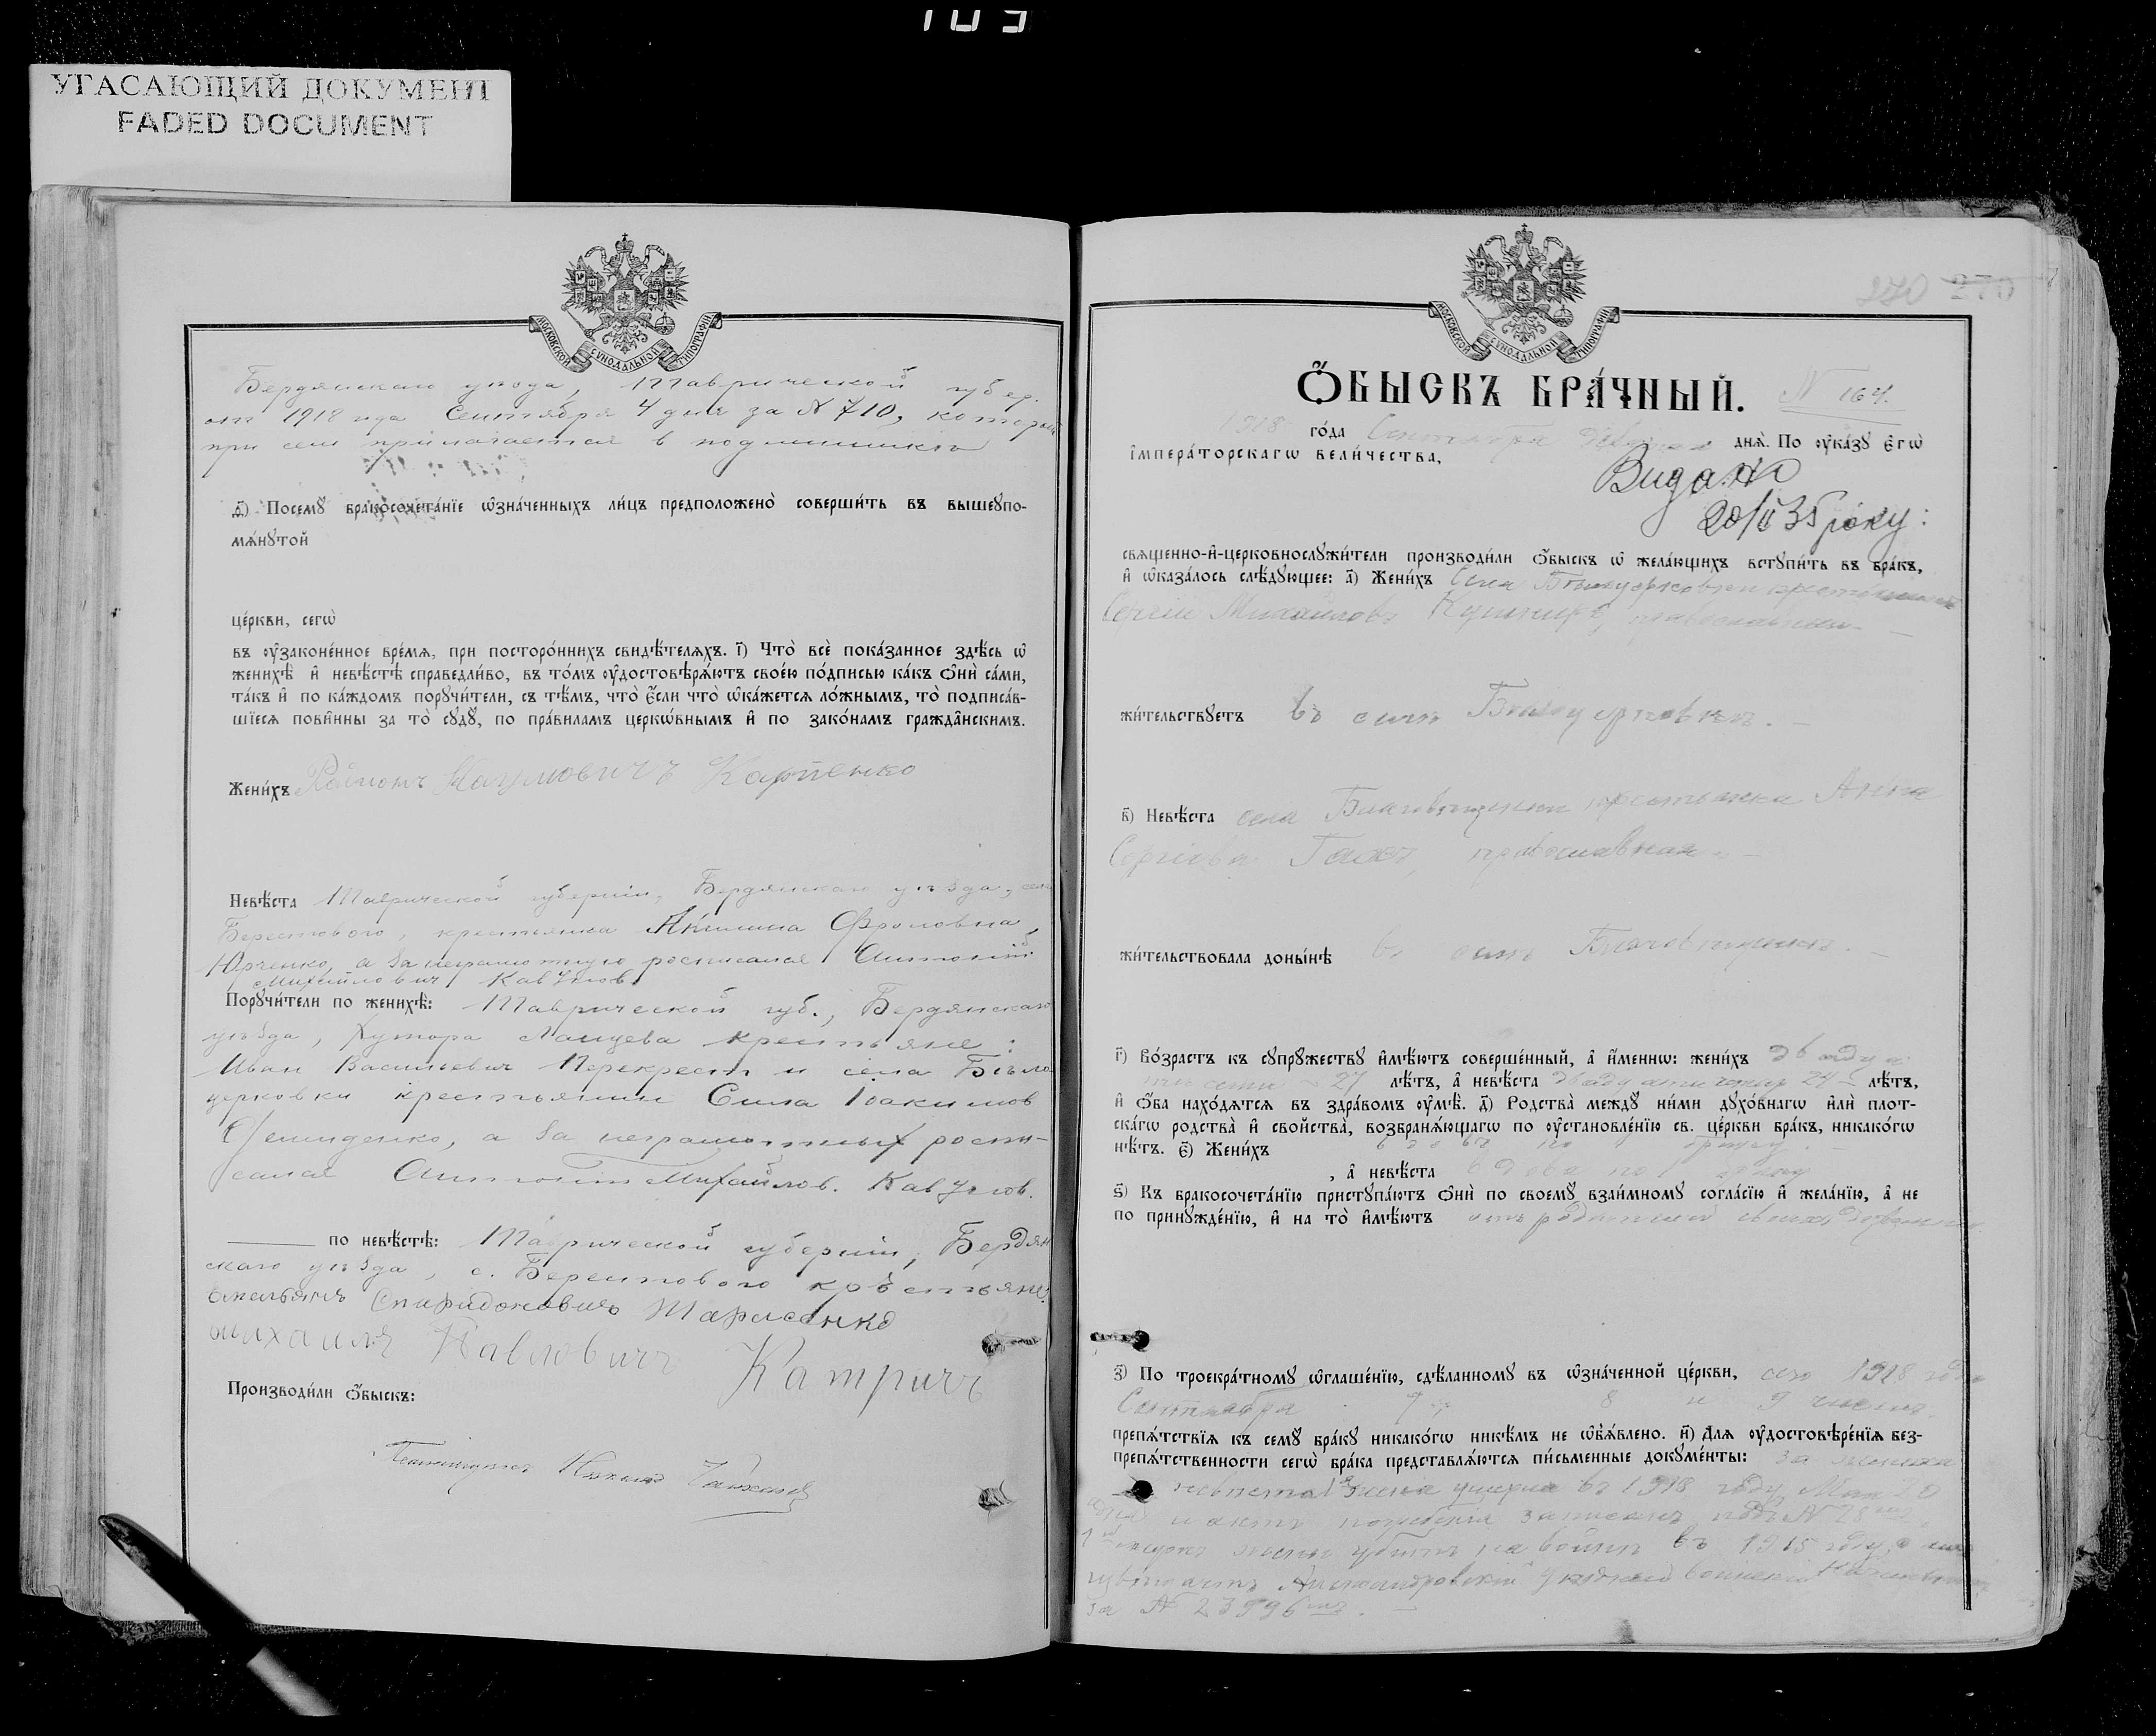 103
УГАСАЮЩИЙ ДОКУМЕНТ
FADED DOCUMENT
МОСКОВСКОЙ СѴНОДАЛЬНОЙ ТИПОГРАФИИ
Бердянскаго уѣзда, Таврической губер.
от 1918 года Сентября 4 дня за № 710, которы
при сем прилагается в подлиннике
д҃) Посемꙋ бракосочета́нїе ѡзна́ченныхъ ли́цъ предположено̀ соверши́ть въ вышеꙋпо-
мѧ́нꙋтой
це́ркви, сегѡ̀
въ ᲂу҆законе́нное вре́мѧ, при посторо́ннихъ свидѣ́телѧхъ. і҃) Что̀ всѐ пока́занное здѣ́сь ѡ҆
женихѣ̀ и҆ невѣ́стѣ справедли́во, въ то́мъ ᲂу҆достовѣрѧ́ютъ свое́ю по́дписью ка́къ ѻ҆нѝ са́ми,
та́къ и҆ по ка́ждомъ порꙋчи́тели, съ тѣ́мъ, что̀ є҆́сли что̀ ѡ҆ка́жетсѧ ло́жнымъ, то̀ подписа́в-
шїесѧ пови́нны за то̀ сꙋдꙋ̀, по пра́виламъ церкѡ́внымъ и҆ по зако́намъ гражда̑нскимъ.
Жени́хъ Наумовичъ Карпенко
Невѣ́ста Таврической губернии, Бердянскаго уѣзда, села
Берестового, крестьянка Акилина Фроловна
Юрченко, а за неграмотную росписался Антоний
Михайлович Кавунов
Порꙋчи́тели по женихѣ̀: Таврической губ., Бердянскаго
уѣзда, хутора Ланцева крестьяне:
Иван Васильевич Перекрест и села Бѣло
церковки крестьянин Сила Іоакимов
Демиденко, а за неграмотных роспи-
сался Антоний Михайлов. Кавунов.
по невѣ́стѣ: Таврической губернии, Бердян
скаго уѣзда, с. Берестового крѣстьяне:
Емельянъ Спиридоновичъ Тарасенко
михаилъ Павловичъ Катричъ
Производи́ли ѻ҆́быскъ:
270 270
МОСКОВСКОЙ СѴНОДАЛЬНОЙ ТИПОГРАФИИ
Ѻ҆́БЫСКЪ БРА́ЧНЫЙ. № 164.
1918 го́да Сентября днѧ̀. По ᲂу҆ка́зꙋ є҆гѡ̀
і҆мпера́торскагѡ вели́чества,
Видано
20/II 35 року:
свѧще́нно-и҆-церковнослꙋжи́тели производи́ли ѻ҆́быскъ ѡ҆ жела́ющихъ встꙋпи́ть въ бра́къ,
и҆ ѡ҆каза́лось слѣ́дꙋющее: а҃) Жени́хъ Села крестьянинъ
Сергій Михаиловъ Кушниръ, православный
жи́тельствꙋетъ въ селѣ
в҃) Невѣ́ста села Благовѣщенки крестьянка Анна
Сергіева православная
жи́тельствовала доны́нѣ в селѣ Благовѣщенкѣ
г҃) Во́зрастъ къ сꙋпрꙋ́жествꙋ и҆мѣ́ютъ соверше́нный, а҆ и҆́меннѡ: жени́хъ двадца
ти семи 27 лѣ́тъ, а҆ невѣ́ста двадцати четыр 24 лѣ́тъ,
и҆ ѻ҆́ба нахо́дѧтсѧ въ здра́вомъ ᲂу҆мѣ̀. д҃) Родства̀ междꙋ̀ ни́ми дꙋхо́внагѡ и҆лѝ плот-
ска́гѡ родства̀ и҆ свойства̀, возбранѧ́ющагѡ по ᲂу҆становле́нїю св. це́ркви бра́къ, никако́гѡ
нѣ́тъ. є҃) Жени́хъ вдовъ по 1 браку
, а҆ невѣ́ста вдова по 1 браку
ѕ҃) Къ бракосочета́нїю пристꙋпа́ютъ ѻ҆нѝ по своемꙋ̀ взаи́мномꙋ согла́сїю и҆ жела́нїю, а҆ не
по принꙋжде́нїю, и҆ на то̀ и҆мѣ́ютъ отъ родителей своихъ дозволение
з҃) По троекра́тномꙋ ѡ҆глаше́нїю, сдѣ́ланномꙋ въ ѡ҆зна́ченной це́ркви, сего 1918 года
Сентября 8 и 9 чиселъ
препѧ́тствїѧ къ семꙋ̀ бра́кꙋ никако́гѡ никѣ́мъ не ѡ҆б̾ѧ́влено. и҃) Длѧ ᲂу҆достовѣре́нїѧ без-
препѧ́тственности сегѡ̀ бра́ка представлѧ́ютсѧ пи́сьменные докꙋме́нты: за жениха
невѣста 1ꙗ жена умерла въ 1918 году Мая 20
и актъ погребенія записанъ подъ № 28
1й мужъ убитъ на войнѣ въ 1915 году, о чем
Александровскій уѣздный воинскій Начальникъ
за № 23996